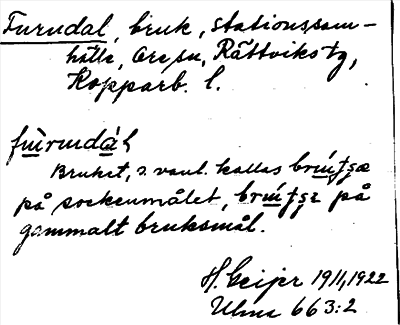 Furudal, bruk, stationssam-
hälle, Ore sn, Rättviks tg,
Kopparb. l.
fùrudá̀l
Bruket, s. vanl. kallas
på sockenmålet, på
gammalt bruksmål.
H. Geijer 1911, 1922
Ulma 663:2